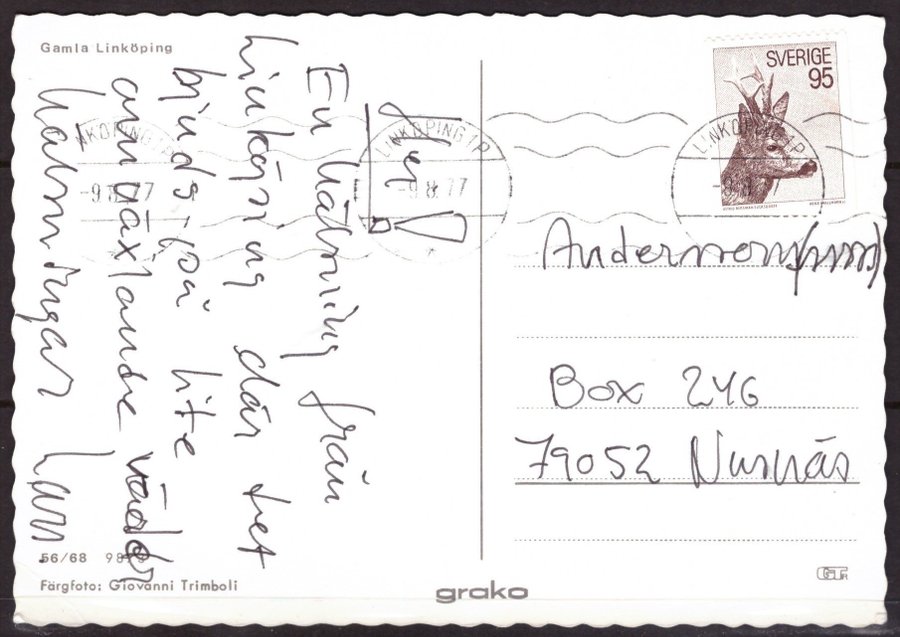 Gamla Linköping
Hej!
En hälsning från
Linköping där det
bjuds på lite
omväxlande väder
Hälsningar Lars
SVERIGE
95
LINKÖPING 1P
-9 8. 77
LINKÖPING 1P
-9 8. 77
LINKÖPING 1P
-9 8
Andersson
Box 246
79052 Nusnäs
56/68 98
Färgfoto: Giovanni Trimboli
grako
GT